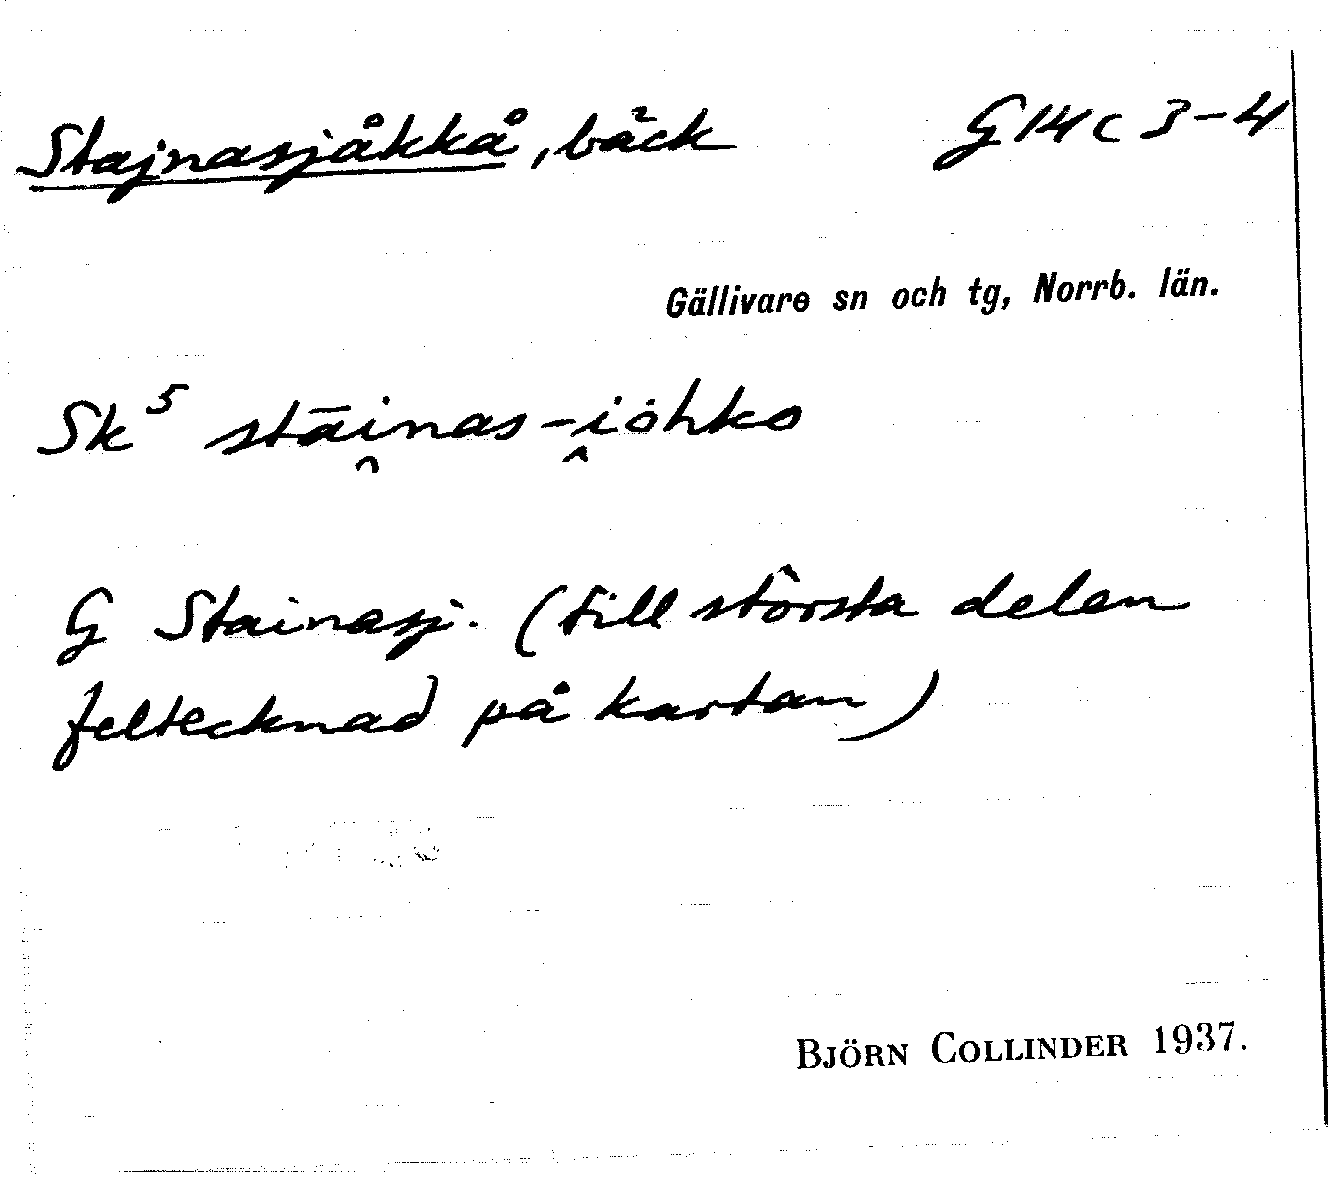 Stajnasjåkkå, bäck G14c 3-4
Gällivare sn och tg, Norrb. län.
Sk⁵ stāi̯nas-i̯òhko
G Stainasj. (till största delen
feltecknad på kartan)
BJÖRN COLLINDER 1937.